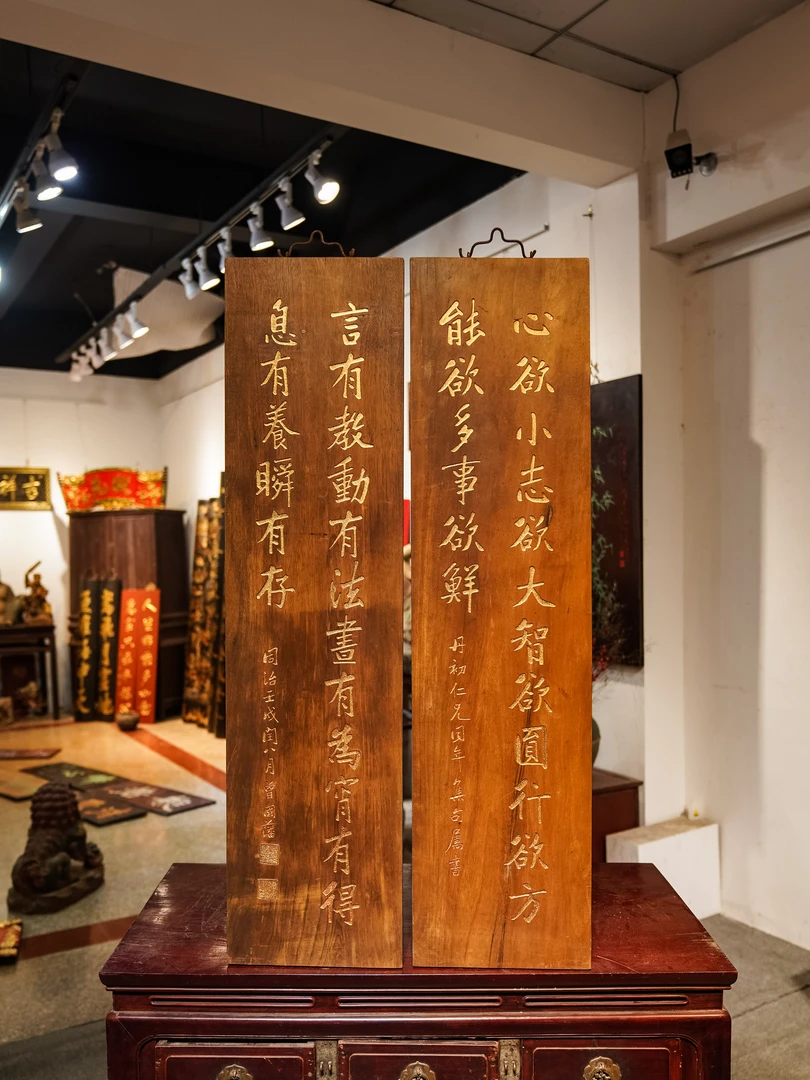 心欲小志欲大智欲圓行欲方
能欲多事欲鮮
丹初仁兄同年 集句屬書
言有教動有法晝有為宵有得
息有養瞬有存
同治壬戌閏八月曾國藩